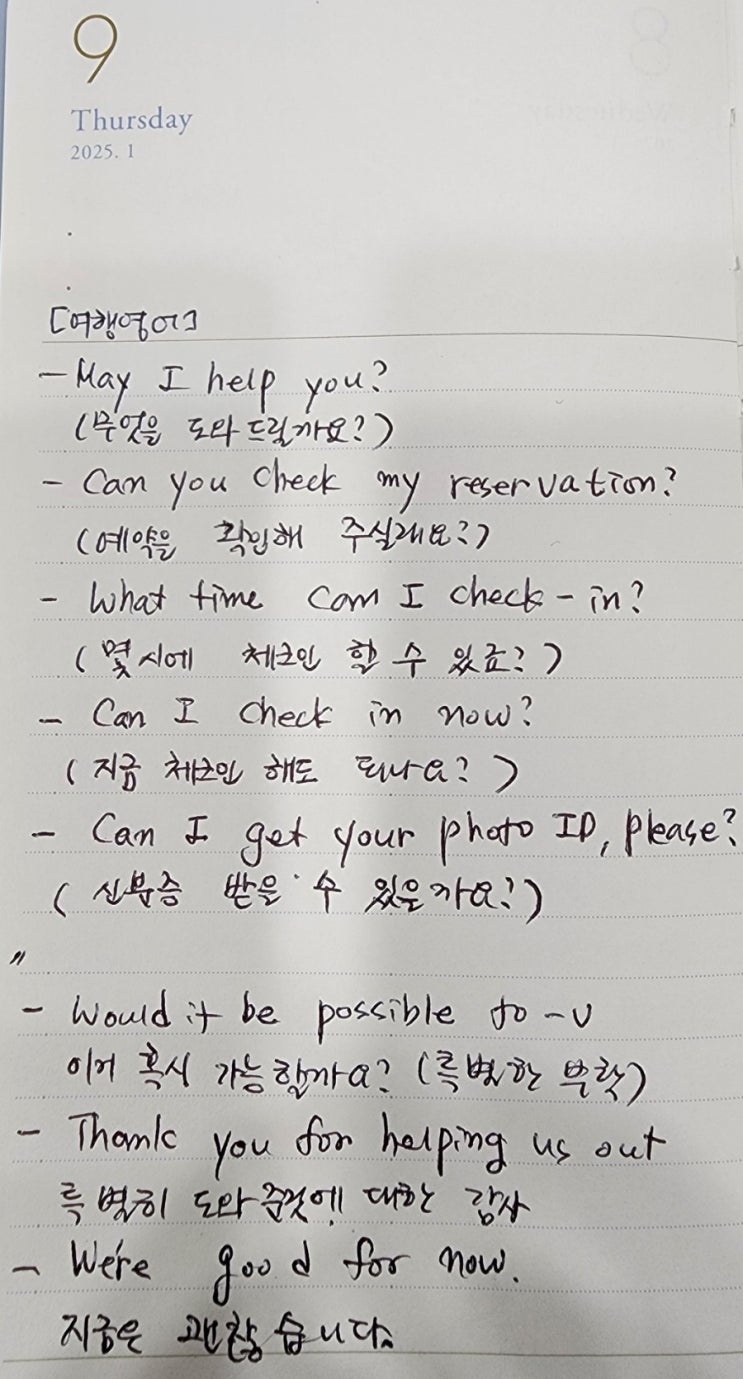 9
Thursday
2025. 1
[여행영어]
- May I help you?
(무엇을 도와드릴까요?)
- Can you check my reservation?
(예약을 확인해 주실래요?)
- What time can I check-in?
(몇시에 체크인 할 수 있죠?)
- Can I check in now?
(지금 체크인 해도 되나요?)
- Can I get your photo ID, please?
(신분증 받을 수 있을까요?)
〃
- Would it be possible to -v
이거 혹시 가능할까요? (특별한 부탁)
- Thank you for helping us out
특별히 도와준것에 대한 감사
- We're good for now.
지금은 괜찮습니다.